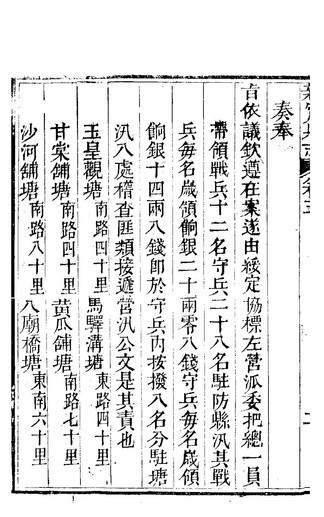 奏奉
旨依議欽遵在案遂由綏定協標左營派委把總一員
帶領戰兵十二名守兵二十八名駐防縣汛其戰
兵每名歲領餉銀二十兩零八錢守兵每名歲領
餉銀十四兩八錢卽於守兵內按撥八名分駐塘
汛八處稽查匪類接遞營汛公文是其責也
玉皇觀塘南路四十里 馬驛溝塘東路四十里
甘棠舖塘南路四十里 黃瓜舖塘南路七十里
沙河舖塘南路八十里 八廟橋塘東南六十里